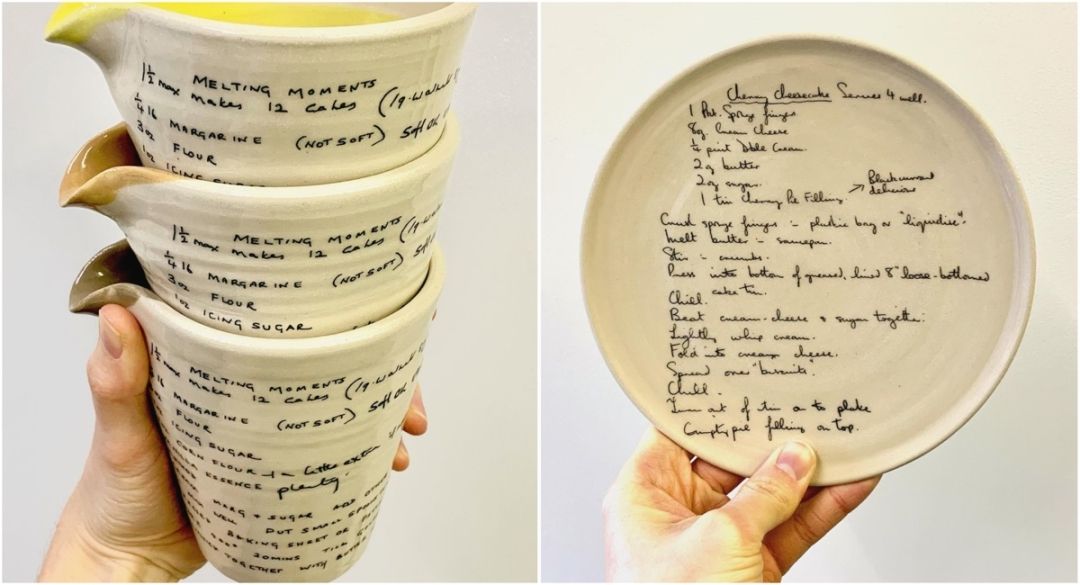 MELTING MOMENTS
1½ max makes 12 cakes (1g. walnut
¼ lb MARGARINE (NOT SOFT) Soft OK
3oz FLOUR
1oz ICING SUGAR
MELTING MOMENTS
1½ max makes 12 cakes (1g.
¼ lb MARGARINE (NOT SOFT) Soft
3oz FLOUR
1oz ICING SUGAR
MELTING MOMENTS
1½ max makes 12 cakes (1g. walnut
MARGARINE (NOT SOFT) Soft OK
FLOUR
ICING SUGAR
CORN FLOUR + a little extra
ESSENCE plenty.
MARG + SUGAR ADD OTHER
WELL PUT SMALL
BAKING SHEET OR
20MINS TILL
TOGETHER WITH BUTTER
Cherry Cheesecake Serves 4 well.
1 Pkt. Sponge fingers
8oz Cream Cheese
¼ pint Dble Cream.
2oz butter
2oz sugar.
1 tin Cherry Pie Filling. → Blackcurrant
delicious
Crush sponge fingers in plastic bag or "liquidise".
Melt butter in saucepan.
Stir in crumbs.
Press into bottom of greased, lined 8" loose-bottomed
cake tin.
Chill.
Beat cream-cheese & sugar together.
Lightly whip cream.
Fold into cream cheese.
Spread over "biscuits".
Chill.
Turn out of tin on to plate
filling on top.